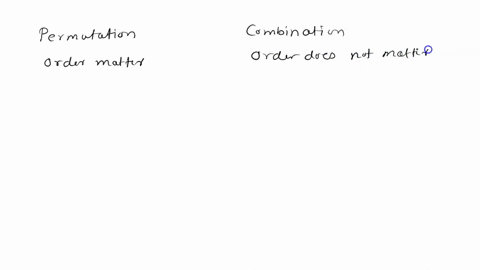 Permutation
Order matter
Combination
Order does not matter